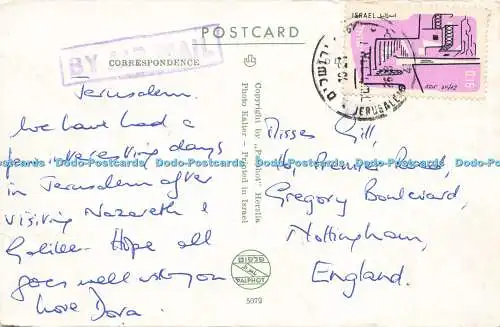 POSTCARD
BY AIR MAIL
CORRESPONDENCE
ISRAEL
JERUSALEM
Jerusalem.
We have had a
few interesting days
in Jerusalem after
visiting Nazareth &
Galilee. Hope all
goes well with you
Love Dora.
Copyright by „Palphot" Herzlia
Photo Kaller – Printed in Israel
פלפוט
PALPHOT
5079
Misses Gill,
Road,
Gregory Boulevard,
Nottingham,
England.
Dodo-Postcards Dodo-Postcards Dodo-Postcards Dodo-Postcards